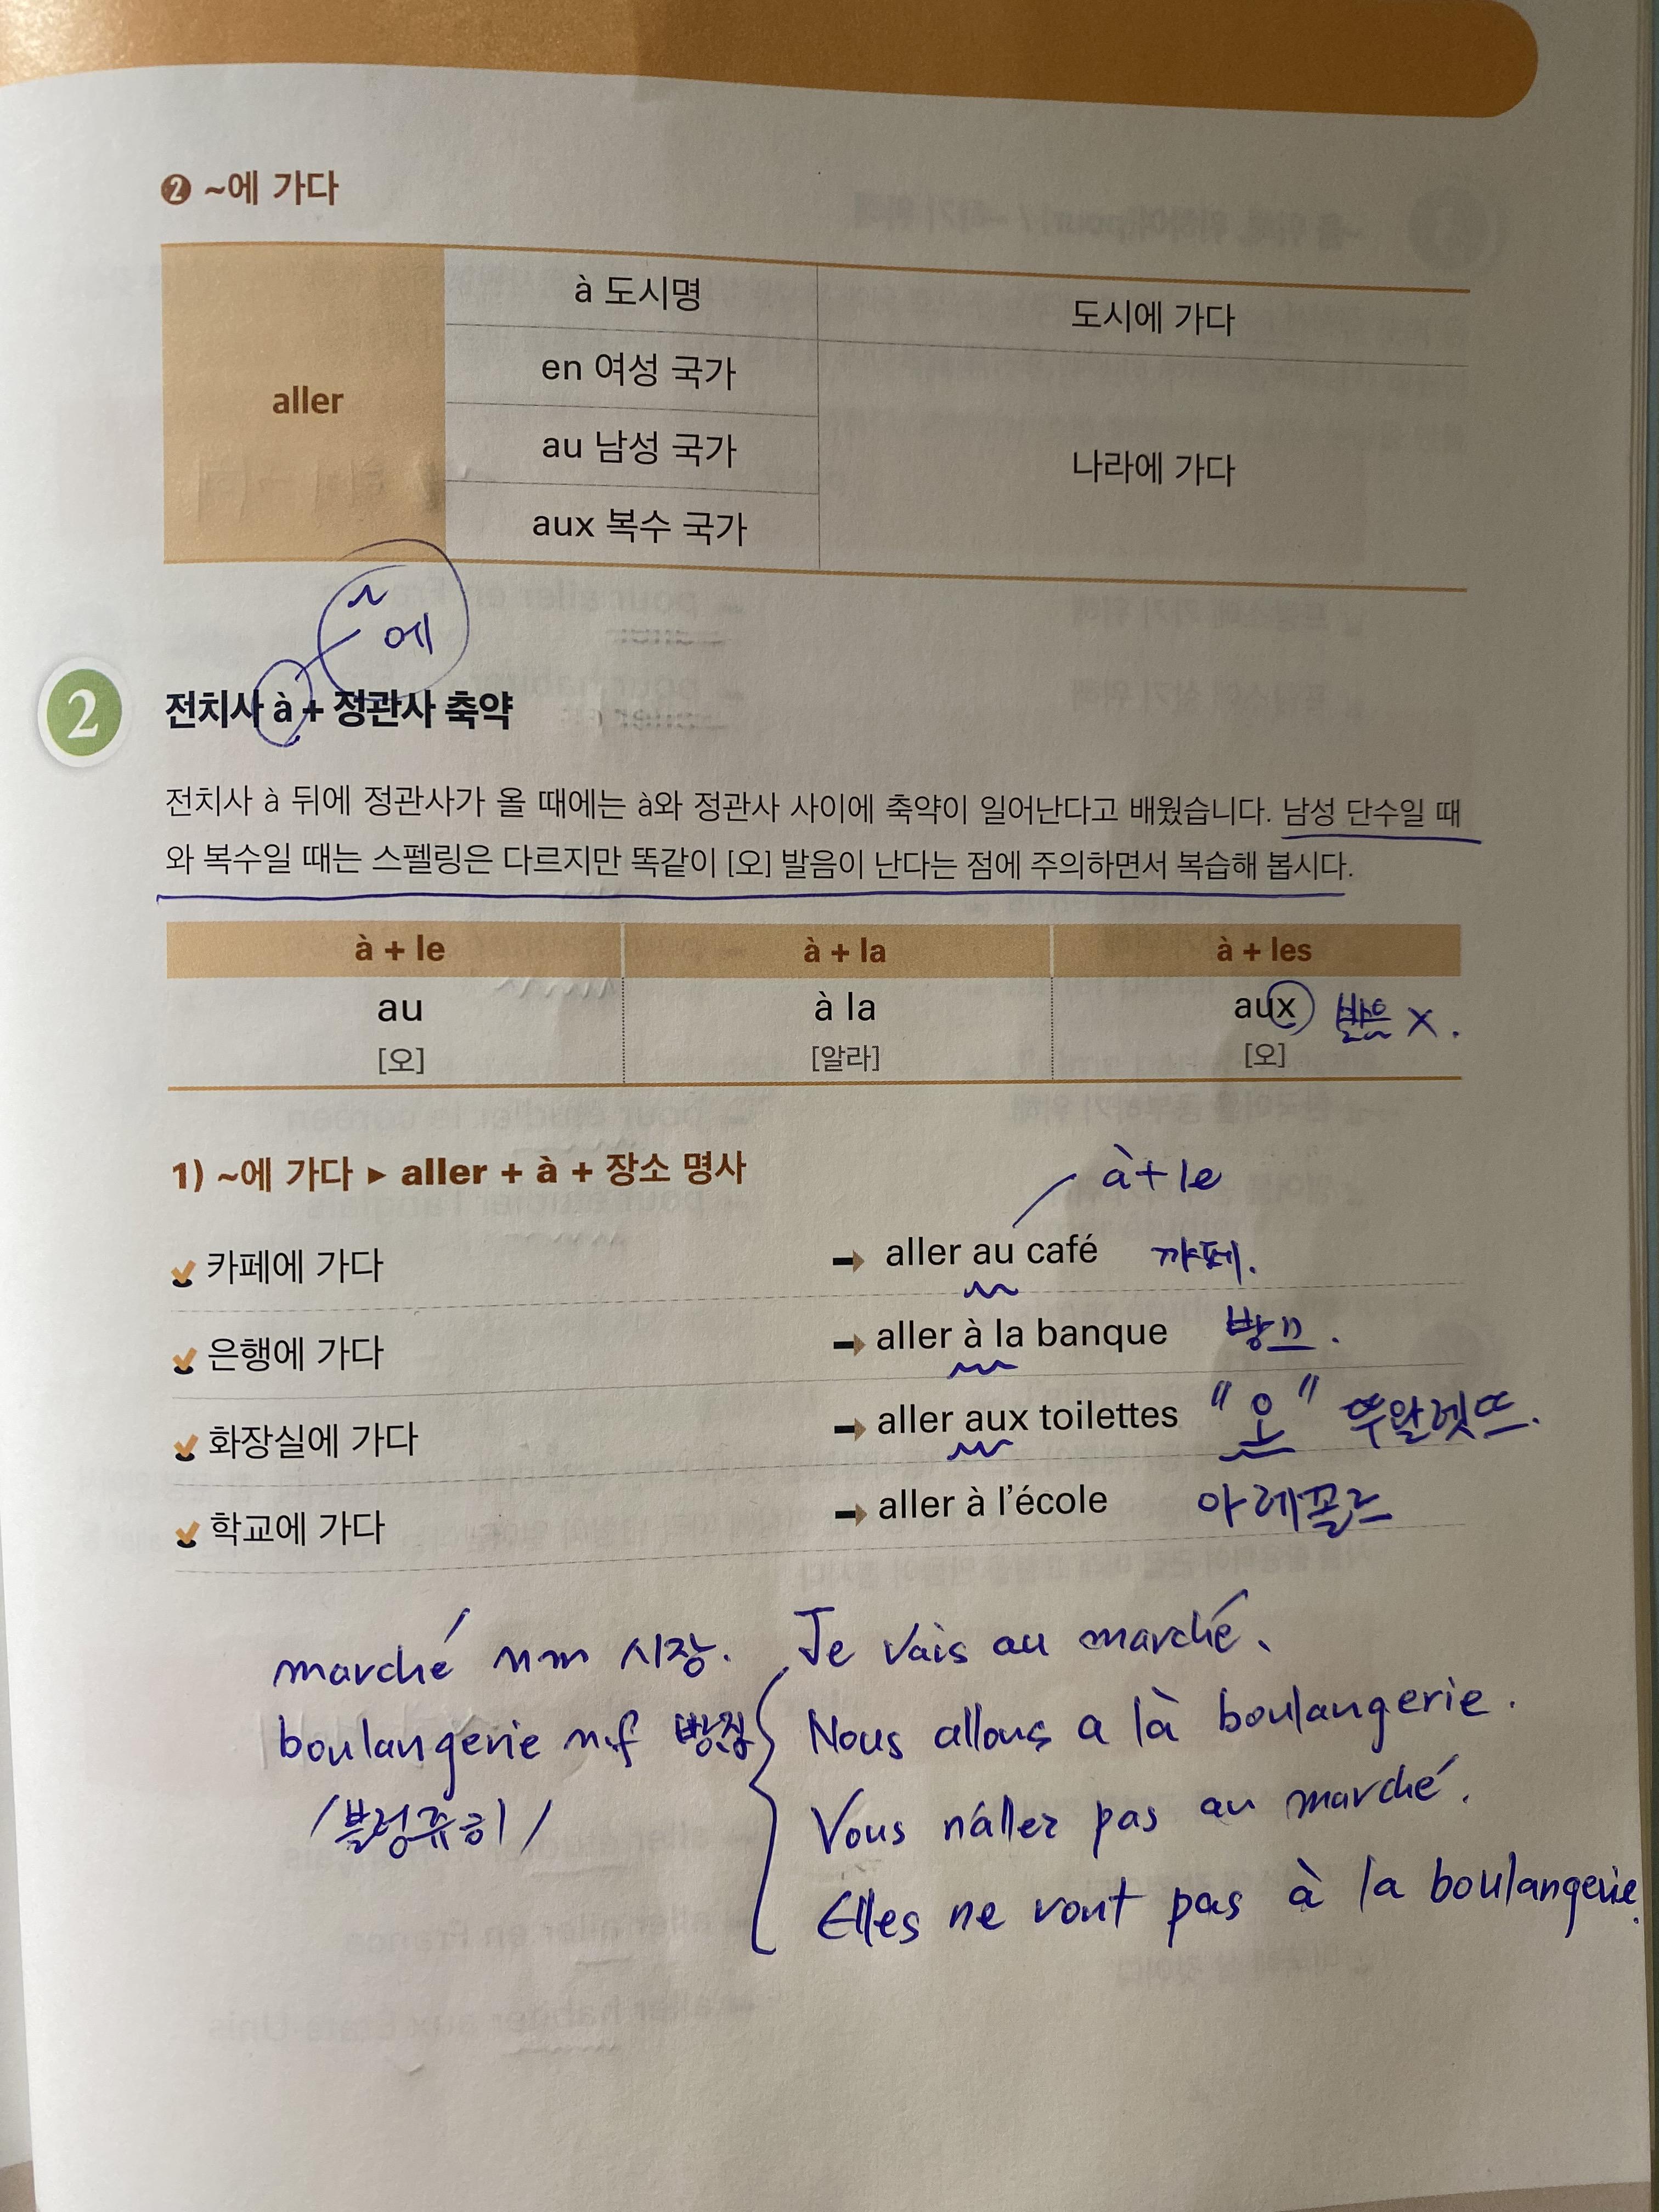 ❷ ~에 가다
aller
à 도시명
도시에 가다
en 여성 국가
au 남성 국가
나라에 가다
aux 복수 국가
~에
2 전치사 à + 정관사 축약
전치사 à 뒤에 정관사가 올 때에는 à와 정관사 사이에 축약이 일어난다고 배웠습니다. 남성 단수일 때
와 복수일 때는 스펠링은 다르지만 똑같이 [오] 발음이 난다는 점에 주의하면서 복습해 봅시다.
à + le à + la à + les
au à la aux 발음 X.
[오] [알라] [오]
1) ~에 가다 ▸ aller + à + 장소 명사
à + le
카페에 가다 ➡ aller au café 꺄페.
은행에 가다 ➡ aller à la banque 방끄.
화장실에 가다 ➡ aller aux toilettes "오" 뚜왈렛뜨.
학교에 가다 ➡ aller à l'école 아 레꼴르
marché nm 시장. Je vais au marché.
boulangerie n.f 빵집 Nous allons a là boulangerie.
/불렁쥬히/ Vous n'allez pas au marché.
Elles ne vont pas à la boulangerie.